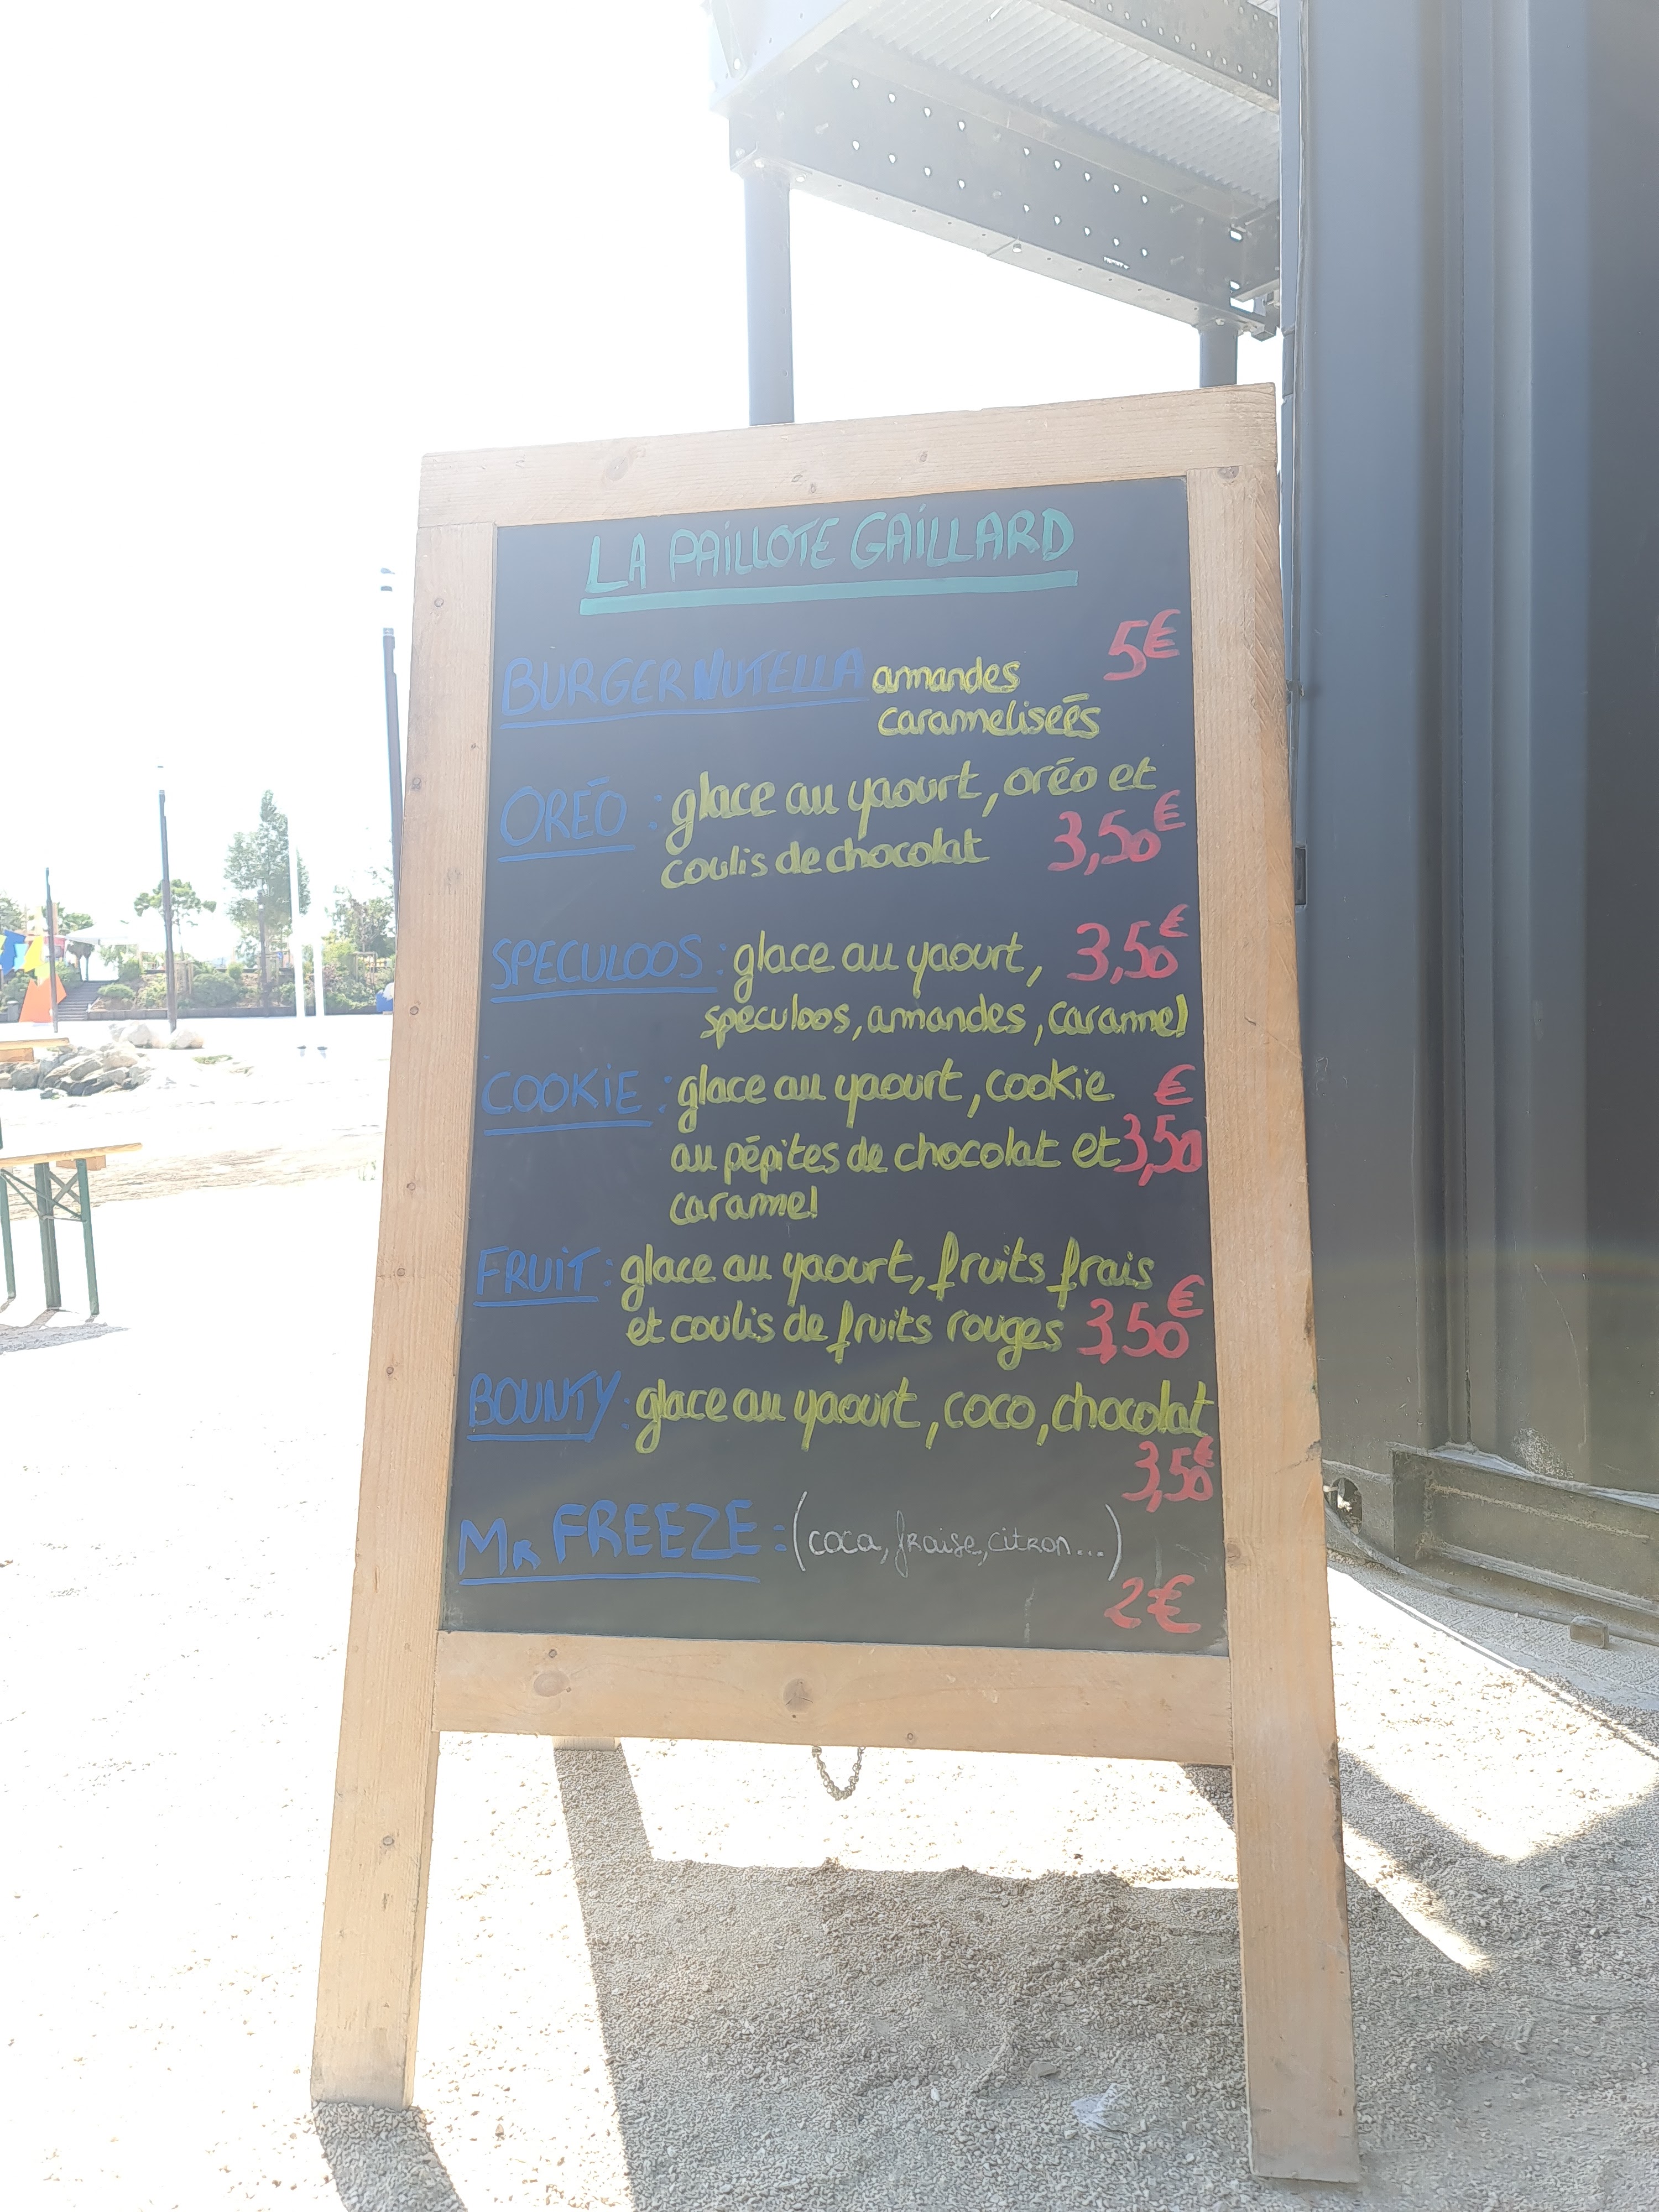 LA PAILLOTE GAILLARD
BURGER NUTELLA amandes 5€
carameliseés
ORÉO : glace au yaourt, oréo et
coulis de chocolat 3,50€
SPECULOOS : glace au yaourt, 3,50€
speculoos, amandes, caramel
COOKIE : glace au yaourt, cookie €
au pépites de chocolat et 3,50
caramel
FRUIT : glace au yaourt, fruits frais
et coulis de fruits rouges 3,50€
BOUNTY : glace au yaourt, coco, chocolat
3,50€
MR FREEZE : (coca, fraise, citron...)
2€